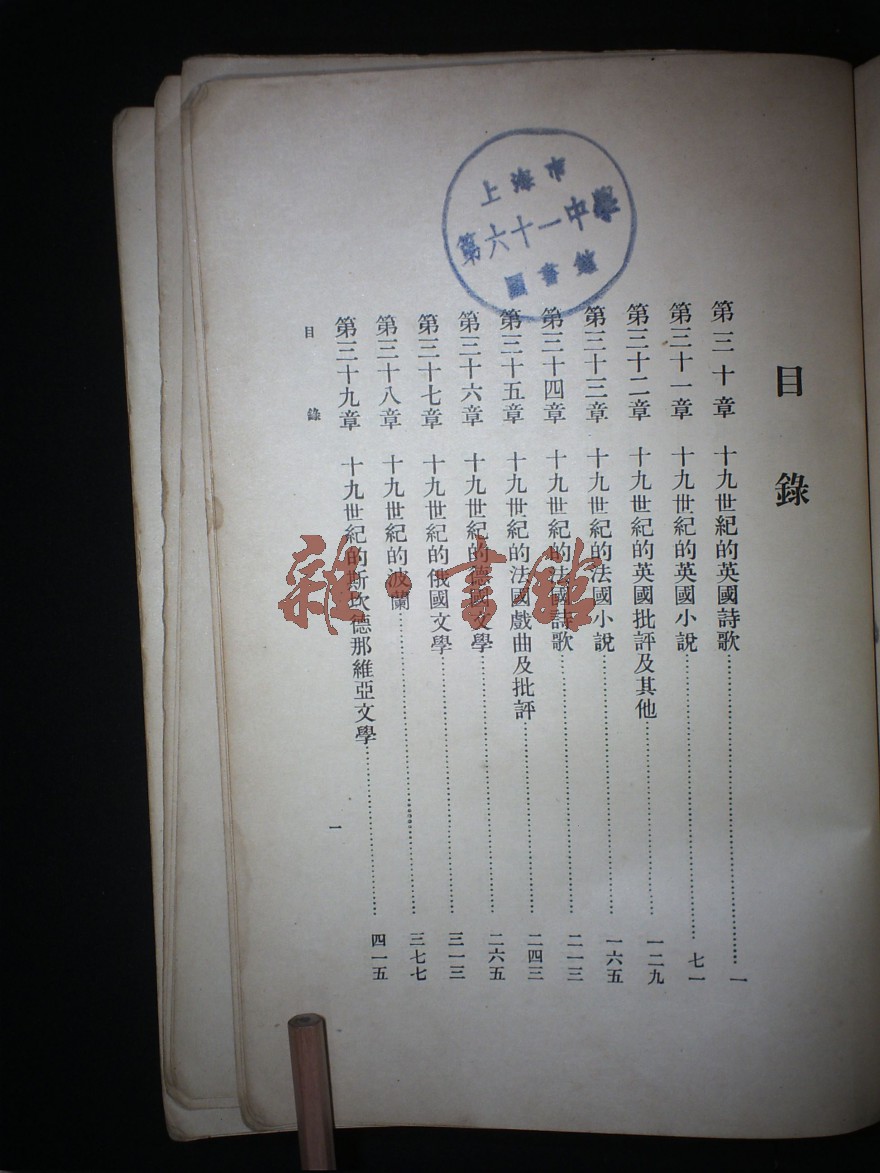 上海市
第六十一中學
圖書館
目錄
第三十章 十九世紀的英國詩歌 一
第三十一章 十九世紀的英國小說 七一
第三十二章 十九世紀的英國批評及其他 一二九
第三十三章 十九世紀的法國小說 一六五
第三十四章 十九世紀的法國詩歌 二一三
第三十五章 十九世紀的法國戲曲及批評 二四三
第三十六章 十九世紀的德國文學 二六五
第三十七章 十九世紀的俄國文學 三一三
第三十八章 十九世紀的波蘭 三七七
第三十九章 十九世紀的斯坎德那維亞文學 四一五
目錄 一
雜·書館